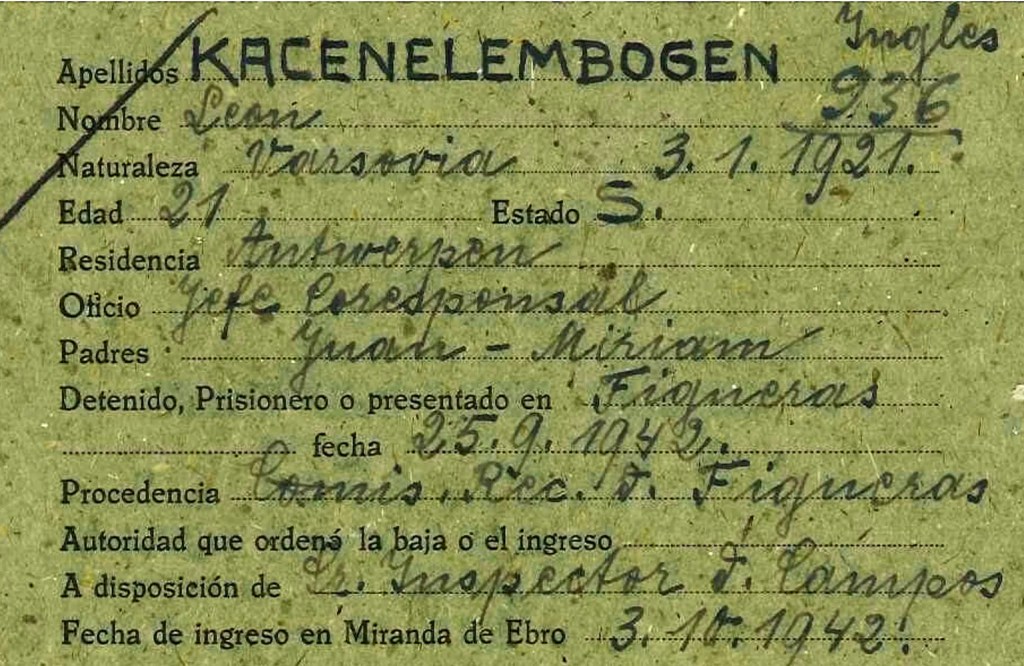 Ingles
Apellidos KACENELEMBOGEN
936
Nombre Leon
Naturaleza Varsovia 3. 1. 1921.
Edad 21 Estado S.
Residencia Antwerpen
Oficio Jefe Coresponsal
Padres Juan - Miriam
Detenido, Prisionero o presentado en Figueras
fecha 25. 9. 1942.
Procedencia Comis. Rec. F. Figueras
Autoridad que ordenó la baja o el ingreso
A disposición de Sr. Inspector F. Campos
Fecha de ingreso en Miranda de Ebro 3. 10. 1942.